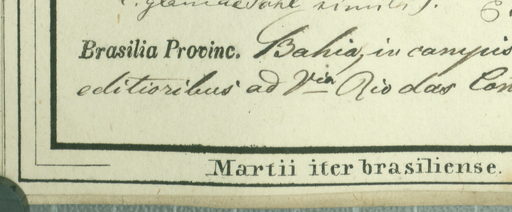 Brasilia Provinc. Bahia, in campis
editioribus ad Via Rio das Con
Martii iter brasiliense.